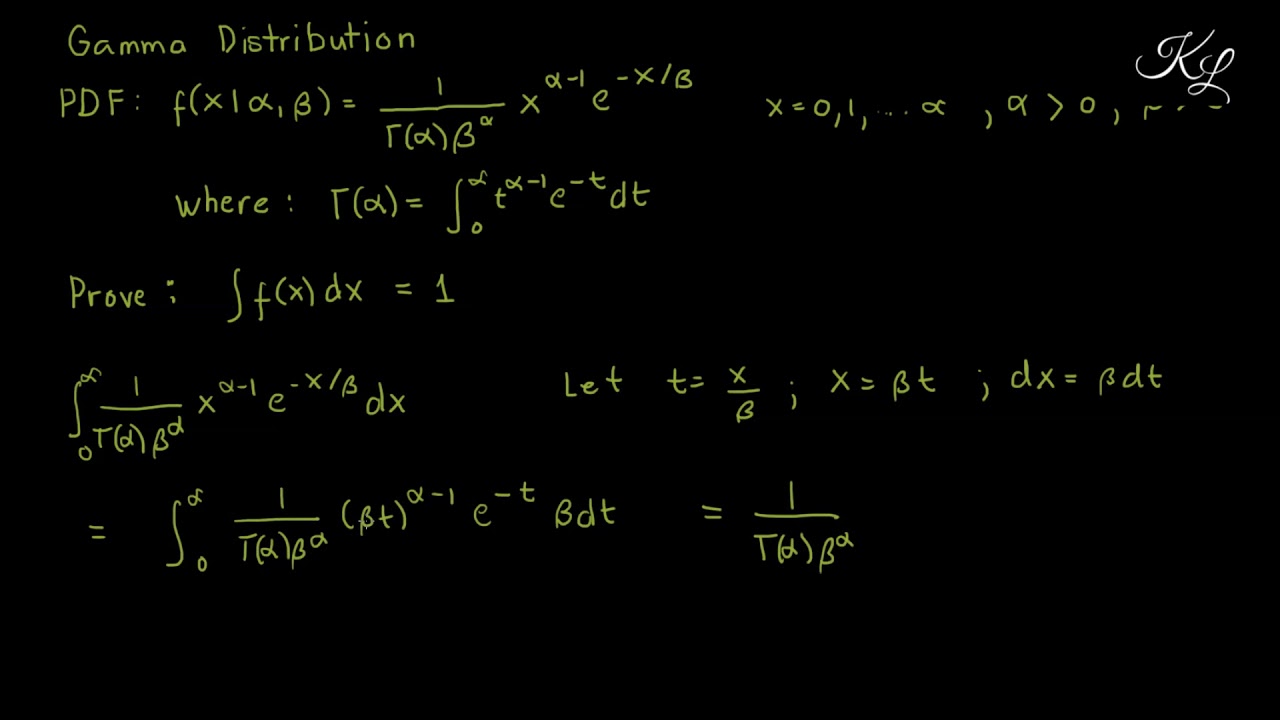 Gamma Distribution
KL
PDF: f(x|α, β) = 1/(Γ(α)β^α) x^(α-1) e^(-x/β)    x = 0, 1, .... ∝ , α > 0 ,
where : Γ(α) = ∫_0^∝ t^(α-1) e^(-t) dt
Prove : ∫ f(x) dx = 1
∫_0^∝ 1/(Γ(α)β^α) x^(α-1) e^(-x/β) dx    Let t = x/β ; x = βt ; dx = βdt
= ∫_0^∝ 1/(Γ(α)β^α) (βt)^(α-1) e^(-t) βdt = 1/(Γ(α)β^α)